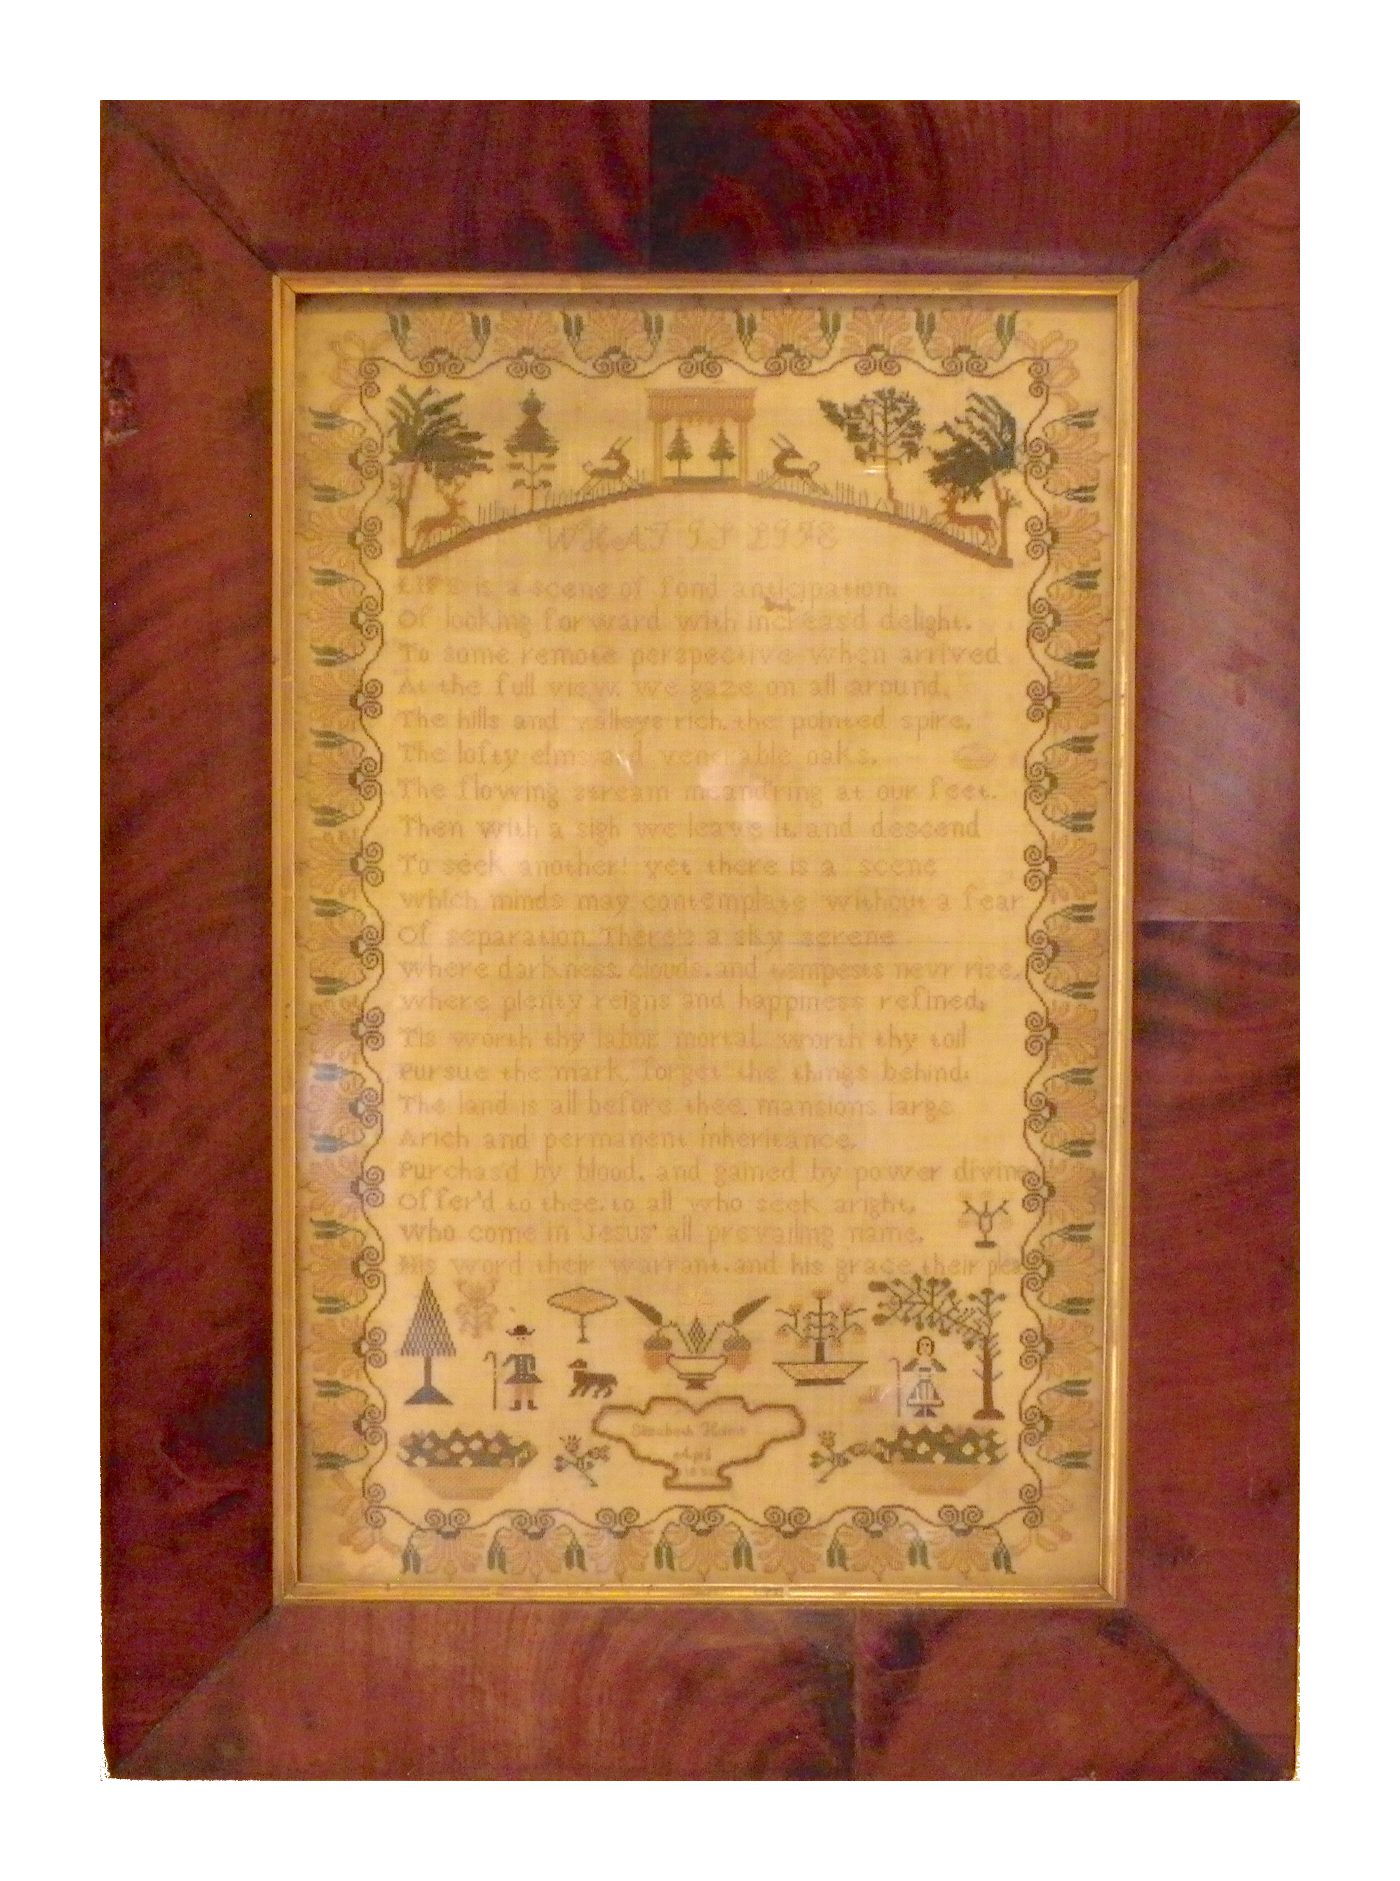 WHAT IS LIFE
LIFE is a scene of fond anticipation.
Of looking forward with increas'd delight.
To some remote perspective when arrived
At the full view. we gaze on all around,
The hills and valleys rich. the pointed spire.
The lofty elms and venerable oaks.
The flowing stream meand'ring at our feet.
Then with a sigh we leave it. and descend
To seek another! yet there is a scene
which minds may contemplate without a fear
Of separation. There's a sky serene
where darkness. clouds. and tempests nevr rise.
where plenty reigns and happiness refined.
Tis worth thy labor mortal. worth thy toil
Pursue the mark. forget the things behind.
The land is all before thee. mansions large
Arich and permanent inheritance.
Purchas'd by blood. and gained by power divine
Offer'd to thee. to all who seek aright.
who come in Jesus' all prevailing name.
His word their warrant. and his grace their plea
Elizabeth